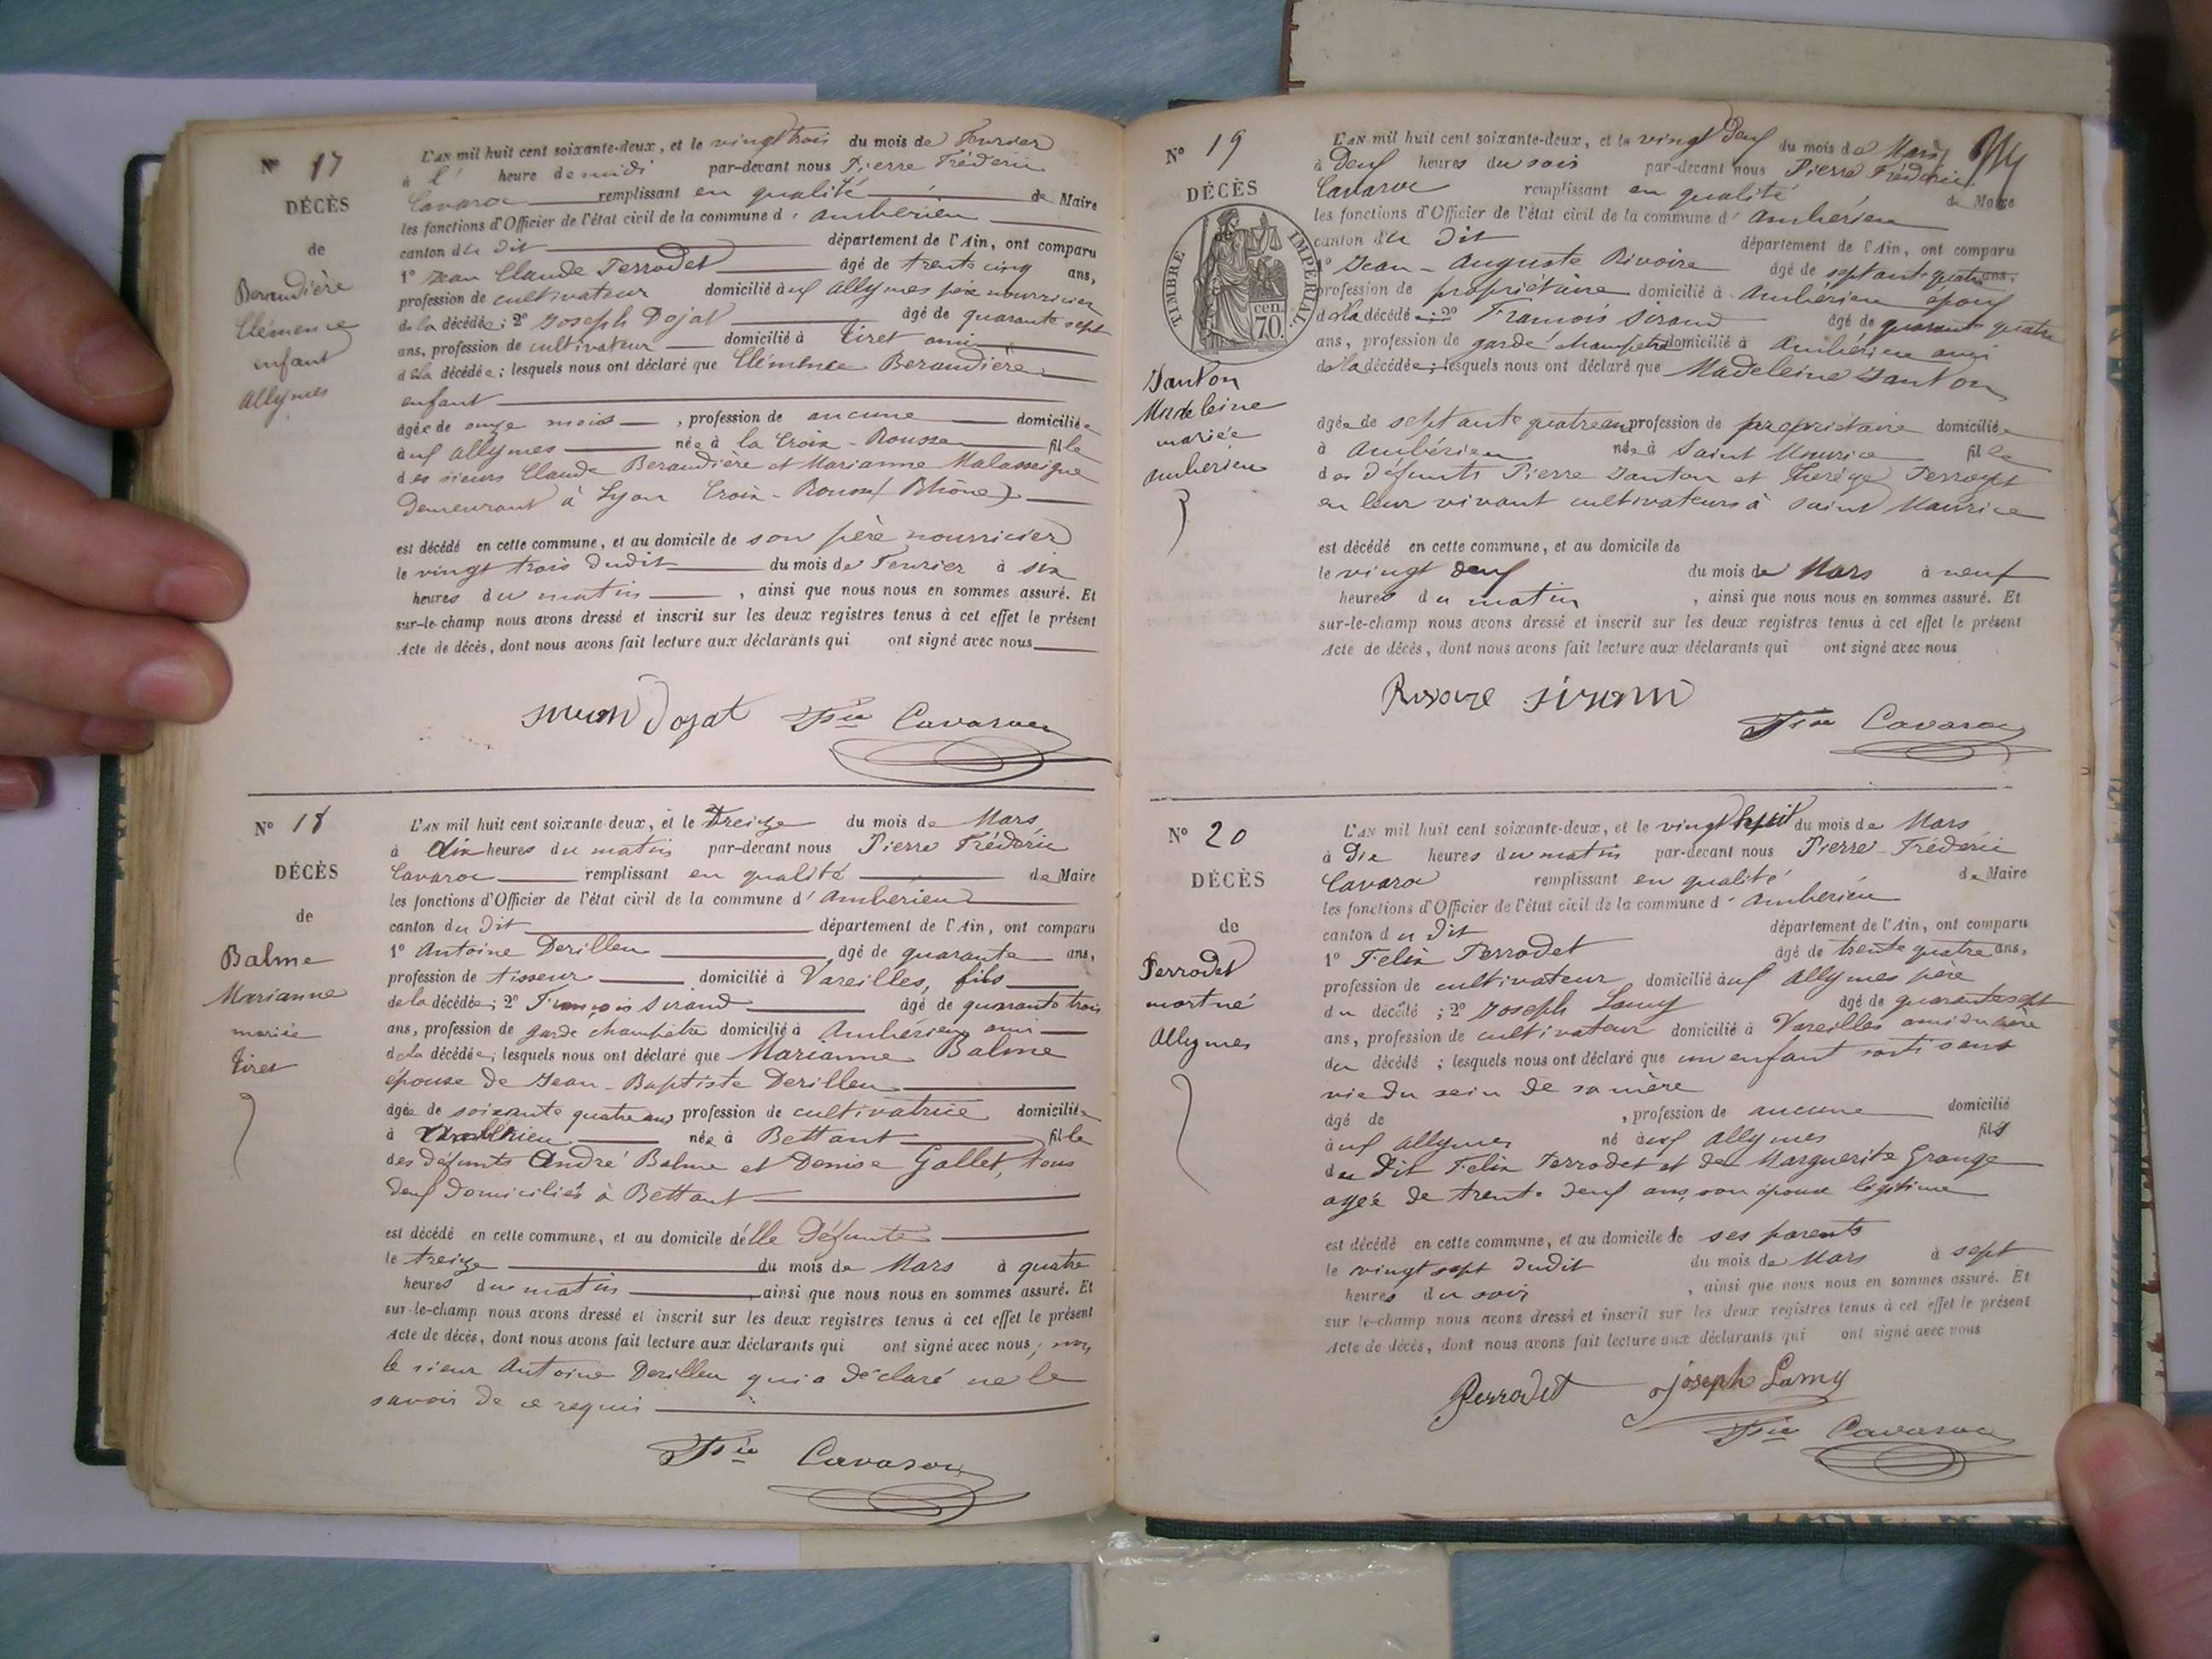 N° 17
DÉCÈS
de
Beraudière
Clémence
enfant
Allymes
L'AN mil huit cent soixante-deux, et le vingt trois du mois de Fevrier
à l' heure de midi par-devant nous Pierre Fréderic
Cavaroc remplissant en qualité de Maire
les fonctions d'Officier de l'état civil de la commune d' Ambérieu
canton du dit département de l'Ain, ont comparu
1° Jean Claude Ferrodet âgé de trente cinq ans,
profession de cultivateur domicilié aux Allymes père nourricier
de la décédée; 2° Joseph Dojat âgé de quarante sept
ans, profession de cultivateur domicilié à Tiret ami
de la décédée; lesquels nous ont déclaré que Clémence Beraudière
enfant
âgée de onze mois, profession de aucune domiciliée
aux Allymes née à la Croix-Rousse fille
des sieurs Claude Beraudière et Marianne Malasseigne
demeurant à Lyon Croix-Rousse (Rhône)
est décédé en cette commune, et au domicile de son père nourricier
le vingt trois dudit du mois de Fevrier à six
heures du matin, ainsi que nous nous en sommes assuré. Et
sur-le-champ nous avons dressé et inscrit sur les deux registres tenus à cet effet le présent
Acte de décès, dont nous avons fait lecture aux déclarants qui ont signé avec nous
Dojat Fric Cavaroc
N° 18
DÉCÈS
de
Balme
Marianne
mariée
Tiret
L'AN mil huit cent soixante-deux, et le treize du mois de Mars
à dix heures du matin par-devant nous Pierre Fréderic
Cavaroc remplissant en qualité de Maire
les fonctions d'Officier de l'état civil de la commune d' Ambérieu
canton du dit département de l'Ain, ont comparu
1° Antoine Derilleu âgé de quarante ans,
profession de tisseur domicilié à Vareilles, fils
de la décédée; 2° François Sirand âgé de quarante trois
ans, profession de garde champêtre domicilié à Ambérieu ami
de la décédée; lesquels nous ont déclaré que Marianne Balme
épouse de Jean-Baptiste Derilleu
âgée de soixante quatre ans profession de cultivatrice domiciliée
à Ambérieu née à Bettant fille
des défunts André Balme et Denise Gallet, tous
deux domiciliés à Bettant
est décédé en cette commune, et au domicile de lle défunte
le treize du mois de Mars à quatre
heures du matin, ainsi que nous nous en sommes assuré. Et
sur-le-champ nous avons dressé et inscrit sur les deux registres tenus à cet effet le présent
Acte de décès, dont nous avons fait lecture aux déclarants qui ont signé avec nous; non
le sieur Antoine Derilleu qui a déclaré ne le
savoir de ce requis
Fric Cavaroc
N° 19
DÉCÈS
de
TIMBRE IMPÉRIAL.
cen.
70.
Janton
Madeleine
mariée
Ambérieu
L'AN mil huit cent soixante-deux, et le vingt deux du mois de Mars
à deux heures du soir par-devant nous Pierre Fréderic
Cavaroc remplissant en qualité de Maire
les fonctions d'Officier de l'état civil de la commune d' Ambérieu
canton du dit département de l'Ain, ont comparu
1° Jean-Auguste Rivoire âgé de septante quatre ans,
profession de propriétaire domicilié à Ambérieu époux
de la décédée; 2° François Sirand âgé de quarante quatre
ans, profession de garde champêtre domicilié à Ambérieu ami
de la décédée; lesquels nous ont déclaré que Madeleine Janton
âgée de septante quatre ans profession de propriétaire domiciliée
à Ambérieu née à Saint Maurice fille
des défunts Pierre Janton et Therèze
en leur vivant cultivateurs à Saint Maurice
est décédé en cette commune, et au domicile de
le vingt deux du mois de Mars à neuf
heures du matin, ainsi que nous nous en sommes assuré. Et
sur-le-champ nous avons dressé et inscrit sur les deux registres tenus à cet effet le présent
Acte de décès, dont nous avons fait lecture aux déclarants qui ont signé avec nous
Rivoire Sirand
Fric Cavaroc
N° 20
DÉCÈS
de
Ferrodet
mort né
Allymes
L'AN mil huit cent soixante-deux, et le vingt huit du mois de Mars
à Dix heures du matin par-devant nous Pierre Fréderic
Cavaroc remplissant en qualité de Maire
les fonctions d'Officier de l'état civil de la commune d' Ambérieu
canton du dit département de l'Ain, ont comparu
1° Felix Ferrodet âgé de trente quatre ans,
profession de cultivateur domicilié aux Allymes père
du décédé; 2° Joseph Lamy âgé de quarante sept
ans, profession de cultivateur domicilié à Vareilles ami du père
du décédé; lesquels nous ont déclaré que un enfant sorti sans
vie du sein de sa mère
âgé de, profession de aucune domicilié
aux Allymes né aux Allymes fils
du dit Felix Ferrodet et de Marguerite Grange
agée de trente deux ans, son épouse légitime
est décédé en cette commune, et au domicile de ses parents
le vingt sept dudit du mois de Mars à sept
heures du soir, ainsi que nous nous en sommes assuré. Et
sur-le-champ nous avons dressé et inscrit sur les deux registres tenus à cet effet le présent
Acte de décès, dont nous avons fait lecture aux déclarants qui ont signé avec nous
Perrodet Joseph Lamy
Fric Cavaroc